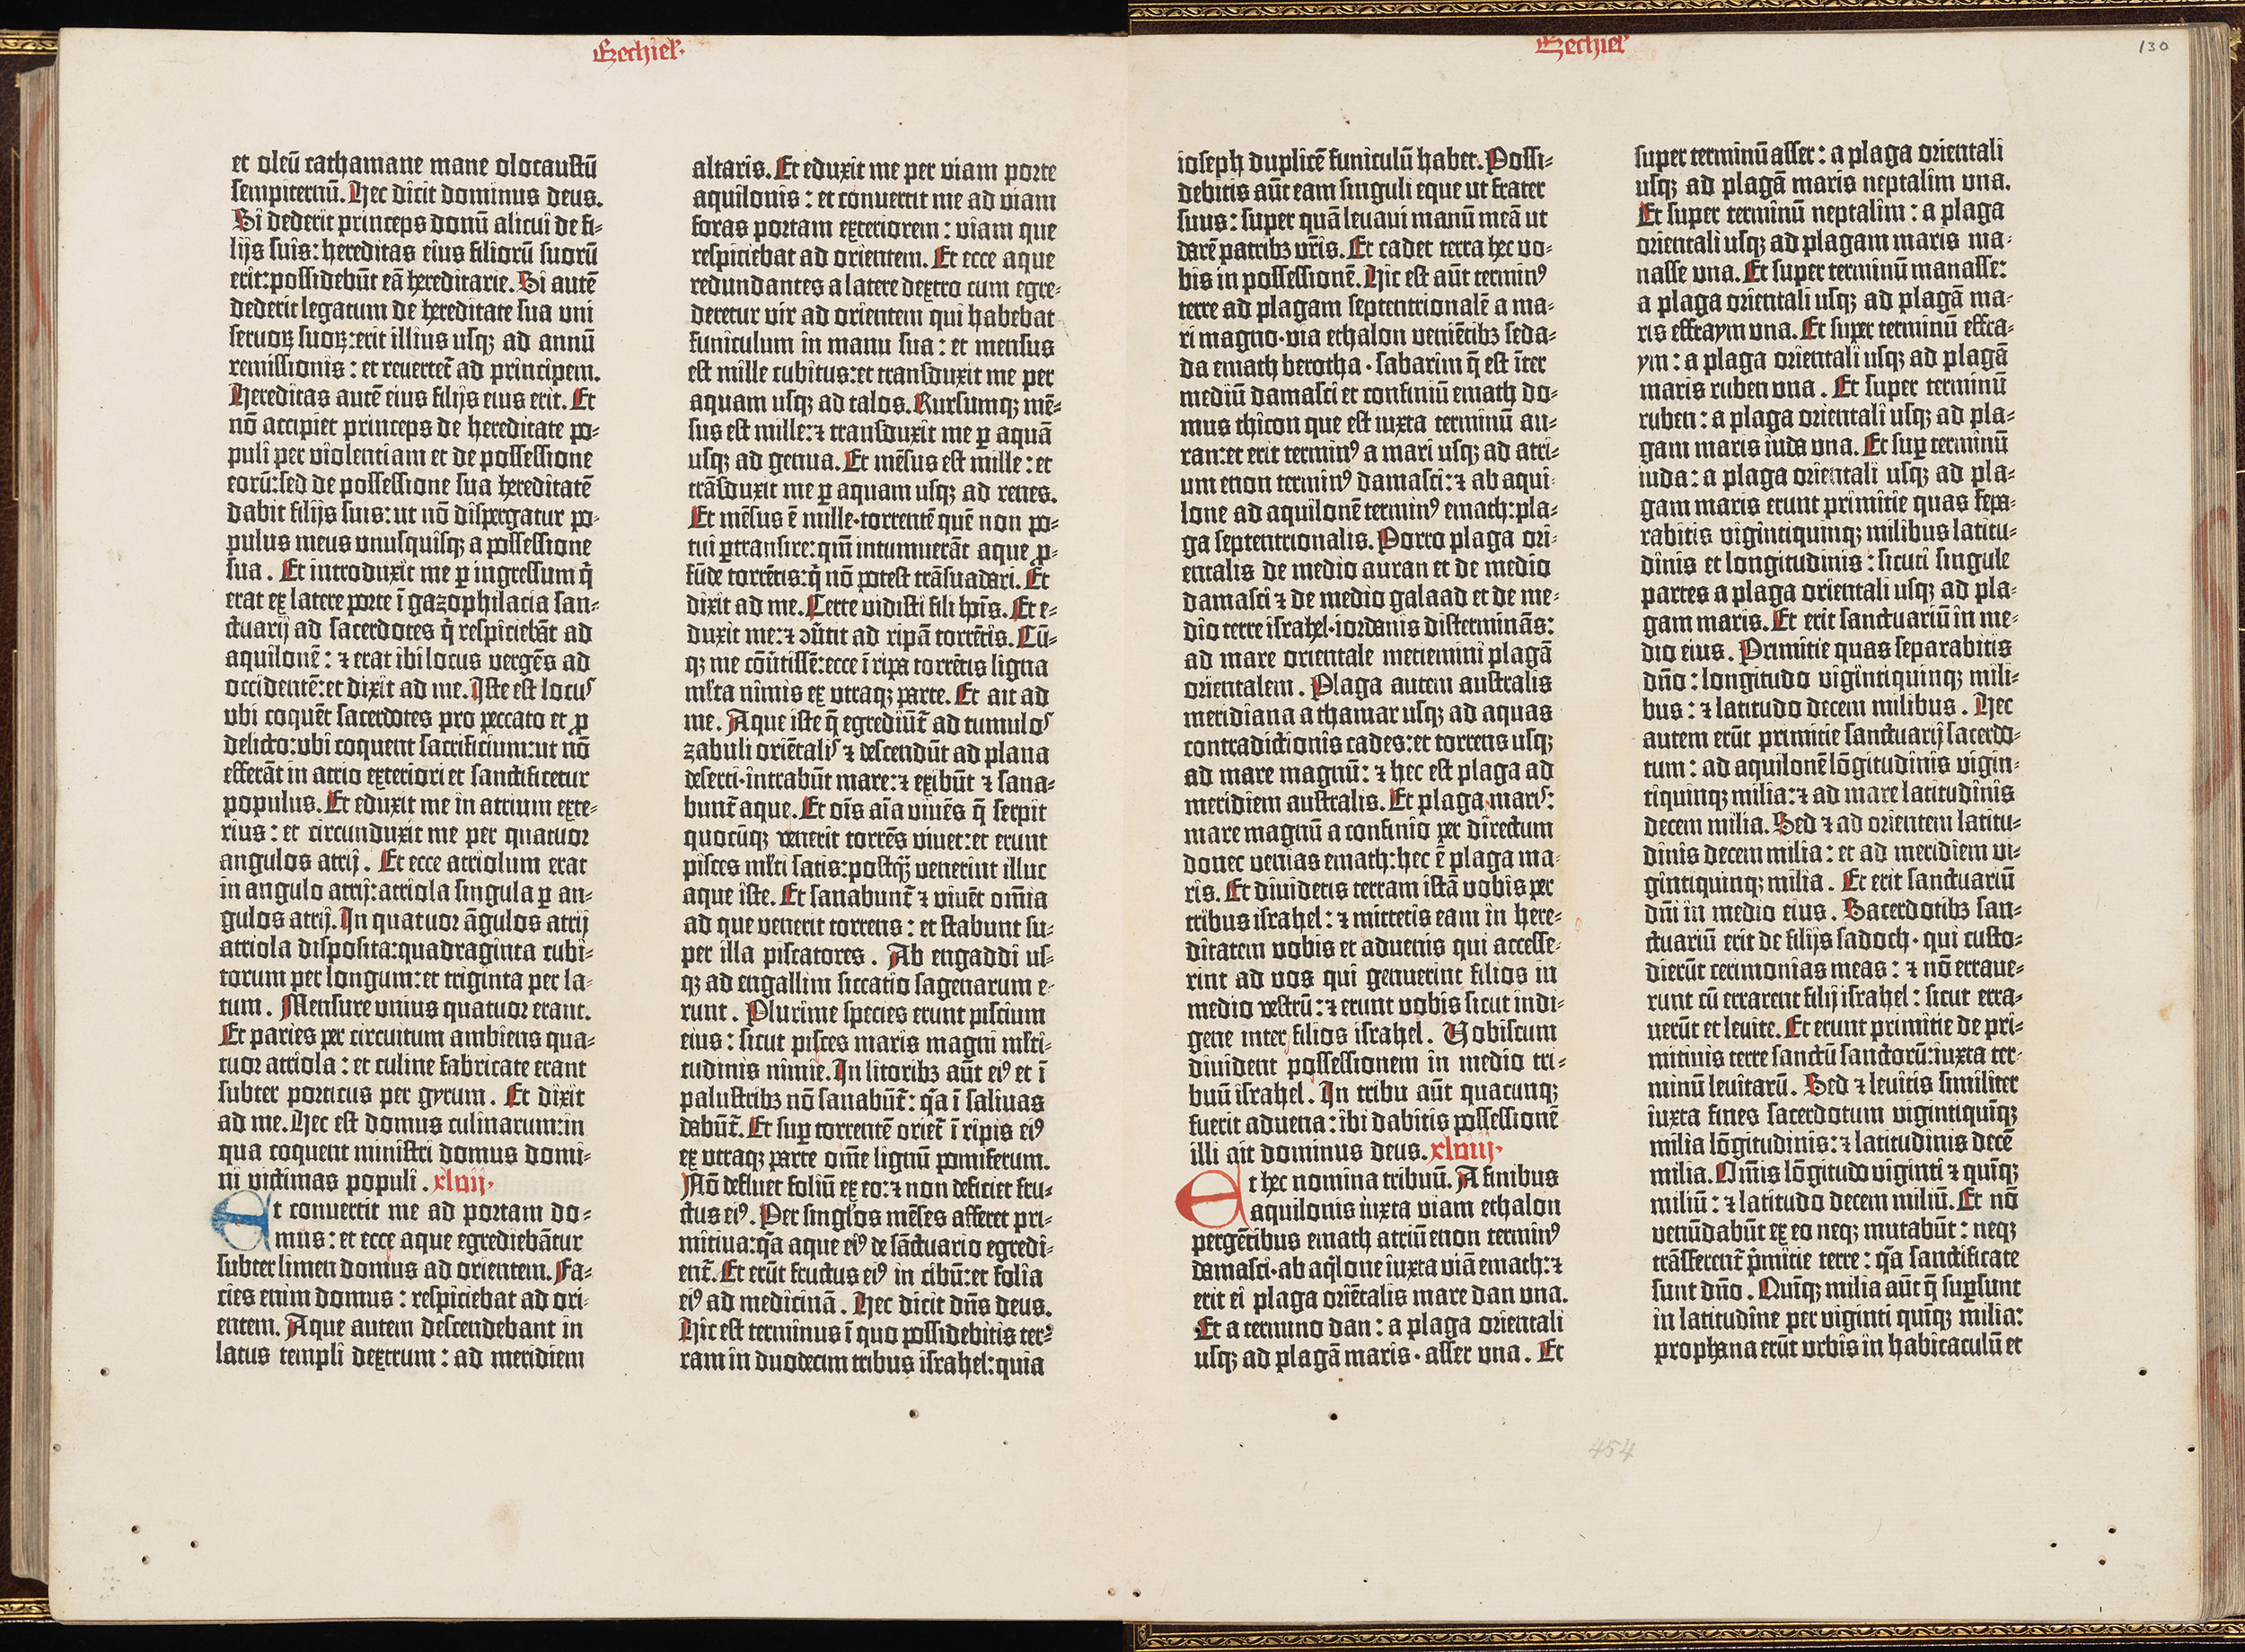 Ezechiel.
et oleū cathamane mane olocaustū
sempiternū. Hec dicit dominus deus.
Si dederit princeps donū alicui de fi-
lijs suis: hereditas eius filiorū suorū
erit: possidebūt eā hereditarie. Si autē
dederit legatum de hereditate sua uni
seruoꝝ suoꝝ: erit illius usqꝫ ad annū
remissionis: et reuertet̄ ad principem.
Hereditas autē eius filijs eius erit. Et
nō accipiet princeps de hereditate po-
puli per violentiam et de possessione
eorū: sed de possessione sua hereditatē
dabit filijs suis: ut nō dispergatur po-
pulus meus unusquisqꝫ a possessione
sua. Et introduxit me ꝑ ingressum q̄
erat ex latere porte ī gazophilacia san-
ctuarij ad sacerdotes q̄ respiciebāt ad
aquilonē: ⁊ erat ibi locus vergēs ad
occidentē: et dixit ad me. Iste est locus
ubi coquēt sacerdotes pro peccato et ꝓ
delicto: ubi coquent sacrificium: ut nō
efferāt in atrio exteriori et sanctificetur
populus. Et eduxit me in atrium exte-
rius: et circunduxit me per quatuor
angulos atrij. Et ecce atriolum erat
in angulo atrij: atriola singula ꝑ an-
gulos atrij. In quatuor āgulos atrij
atriola disposita: quadraginta cubi-
torum per longum: et triginta per la-
tum. Mensure unius quatuor erant.
Et paries per circuitum ambiens qua-
tuor atriola: et culine fabricate erant
subter porticus per gyrum. Et dixit
ad me. Hec est domus culinarum: in
qua coquent ministri domus domi-
ni victimas populi. xlvij.
Et conuertit me ad portam do-
mus: et ecce aque egrediebātur
subter limen domus ad orientem. Fa-
cies enim domus: respiciebat ad ori-
entem. Aque autem descendebant in
latus templi dextrum: ad meridiem
altaris. Et eduxit me per viam porte
aquilonis: et conuertit me ad viam
foras portam exteriorem: viam que
respiciebat ad orientem. Et ecce aque
redundantes a latere dextro cum egre-
deretur vir ad orientem qui habebat
funiculum in manu sua: et mensus
est mille cubitus: et transduxit me per
aquam usqꝫ ad talos. Rursumqꝫ mē-
sus est mille: ⁊ transduxit me ꝑ aquā
usqꝫ ad genua. Et mēsus est mille: et
trāsduxit me ꝑ aquam usqꝫ ad renes.
Et mēsus ē mille· torrentē quē non po-
tui ꝑtransire: qm̄ intumuerāt aque ꝓ-
fūde torrētis: q̄ nō potest trāsuadari. Et
dixit ad me. Certe vidisti fili hoīs. Et e-
duxit me: ⁊ ꝯūtit ad ripā torrētis. Cū-
qꝫ me cōūtissē: ecce ī ripa torrētis ligna
ml̄ta nimis ex utraqꝫ parte. Et ait ad
me. Aque iste q̄ egrediūt̄ ad tumulos
zabuli oriētalis ⁊ descendūt ad plana
deserti· intrabūt mare: ⁊ exibūt ⁊ sana-
bunt̄ aque. Et oīs aīa viuēs q̄ serpit
quocūqꝫ venerit torrēs viuet: et erunt
pisces ml̄ti satis: postqꝫ̄ venerint illuc
aque iste. Et sanabunt̄ ⁊ viuēt om̄ia
ad que venerit torrens: et stabunt su-
per illa piscatores. Ab engaddi us-
qꝫ ad engallim siccatio sagenarum e-
runt. Plurime species erunt piscium
eius: sicut pisces maris magni ml̄ti-
tudinis nimie. In litoribꝫ aūt eiꝰ et ī
palustribꝫ nō sanabūt̄: q̄a ī salinas
dabūt̄. Et suꝑ torrentē oriet̄ ī ripis eiꝰ
ex utraqꝫ parte om̄e lignū pomiferum.
Nō defluet foliū ex eo: ⁊ non deficiet fru-
ctus eiꝰ. Per singl̄os mēses afferet pri-
mitiua: q̄a aque eiꝰ de sāctuario egredi-
ent̄. Et erūt fructus eiꝰ in cibū: et folia
eiꝰ ad medicinā. Hec dicit dn̄s deus.
Hic est terminus ī quo possidebitis ter-
ram in duodecim tribus israhel: quia
Ezechiel
130
ioseph duplicē funiculū habet. Possi-
debitis aūt eam singuli eque ut frater
suus: super quā leuaui manū meā ut
darē patribꝫ vr̄is. Et cadet terra hec vo-
bis in possessionē. Hic est aūt terminꝰ
terre ad plagam septentrionalē a ma-
ri magno· via ethalon veniētibꝫ seda-
da emath berotha· sabarim q̄ est īter
mediū damasci et confiniū emath do-
mus thicon que est iuxta terminū au-
ran: et erit terminꝰ a mari usqꝫ ad atri-
um enon terminꝰ damasci: ⁊ ab aqui-
lone ad aquilonē terminꝰ emath: pla-
ga septentrionalis. Porro plaga ori-
entalis de medio auran et de medio
damasci ⁊ de medio galaad et de me-
dio terre israhel· iordanis disterminās:
ad mare orientale metiemini plagā
orientalem. Plaga autem australis
meridiana a thamar usqꝫ ad aquas
contradictionis cades: et torrens usqꝫ
ad mare magnū: ⁊ hec est plaga ad
meridiem australis. Et plaga maris:
mare magnū a confinio per directum
donec venias emath: hec ē plaga ma-
ris. Et diuidetis terram istā vobis per
tribus israhel: ⁊ mittetis eam in here-
ditatem vobis et aduenis qui accesse-
rint ad vos qui genuerint filios in
medio vestrū: ⁊ erunt vobis sicut indi-
gene inter filios israhel. Vobiscum
diuident possessionem in medio tri-
buū israhel. In tribu aūt quacunqꝫ
fuerit aduena: ibi dabitis possessionē
illi ait dominus deus. xlviij.
Et hec nomina tribuū. A finibus
aquilonis iuxta viam ethalon
pergētibus emath atriū enon terminꝰ
damasci· ab aq̄lone iuxta viā emath: ⁊
erit ei plaga oriētalis mare dan una.
Et a termino dan: a plaga orientali
usqꝫ ad plagā maris· asser una. Et
super terminū asser: a plaga orientali
usqꝫ ad plagā maris neptalim una.
Et super terminū neptalim: a plaga
orientali usqꝫ ad plagam maris ma-
nasse una. Et super terminū manasse:
a plaga orientali usqꝫ ad plagā ma-
ris effraym una. Et super terminū effra-
ym: a plaga orientali usqꝫ ad plagā
maris ruben una. Et super terminū
ruben: a plaga orientali usqꝫ ad pla-
gam maris iuda una. Et suꝑ terminū
iuda: a plaga orientali usqꝫ ad pla-
gam maris erunt primitie quas sepa-
rabitis vigintiquinqꝫ milibus latitu-
dinis et longitudinis: sicuti singule
partes a plaga orientali usqꝫ ad pla-
gam maris. Et erit sanctuariū in me-
dio eius. Primitie quas separabitis
dn̄o: longitudo vigintiquinqꝫ mili-
bus: ⁊ latitudo decem milibus. Hec
autem erūt primitie sanctuarij sacerdo-
tum: ad aquilonē lōgitudinis vigin-
tiquinqꝫ milia: ⁊ ad mare latitudinis
decem milia. Sed ⁊ ad orientem latitu-
dinis decem milia: et ad meridiem vi-
gintiquinqꝫ milia. Et erit sanctuariū
dn̄i in medio eius. Sacerdotibꝫ san-
ctuariū erit de filijs sadoch· qui custo-
dierūt cerimonias meas: ⁊ nō erraue-
runt cū errarent filij israhel: sicut erra-
uerūt et leuite. Et erunt primitie de pri-
mitiuis terre sanctū sanctorū: iuxta ter-
minū leuitarū. Sed ⁊ leuitis similiter
iuxta fines sacerdotum vigintiquīqꝫ
milia lōgitudinis: ⁊ latitudinis decē
milia. Om̄is lōgitudo viginti ⁊ quīqꝫ
miliū: ⁊ latitudo decem miliū. Et nō
venūdabūt ex eo neqꝫ mutabūt: neqꝫ
trāsferent̄ p̄mitie terre: q̄a sanctificate
sunt dn̄o. Quīqꝫ milia aūt q̄ suꝑsunt
in latitudine per viginti quīqꝫ milia:
prophana erūt urbis in habitaculū et
454